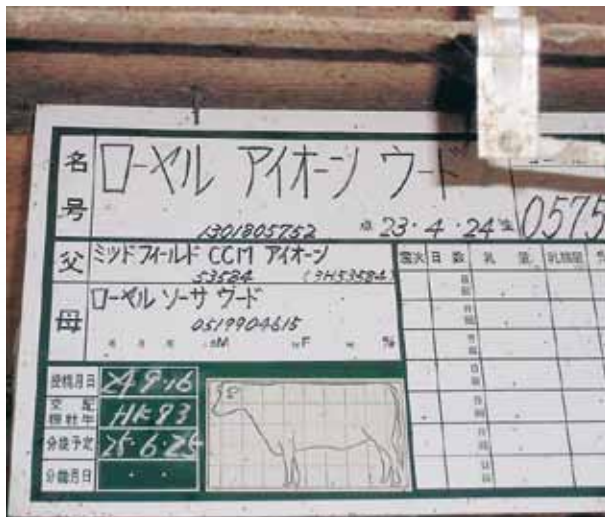 名号 ローヤル アイオーン ウード
1301805752 23・4・24生 0575
父 ミッドフィールド CCM アイオーン
53584 (9H53584)
母 ローヤル ソーサ ウード
0519904615
M F %
産次 日数 乳量 乳脂量
授精月日 24 9・16
交配種牡牛 HK93
分娩予定 25・6・25
分娩月日 ・ ・